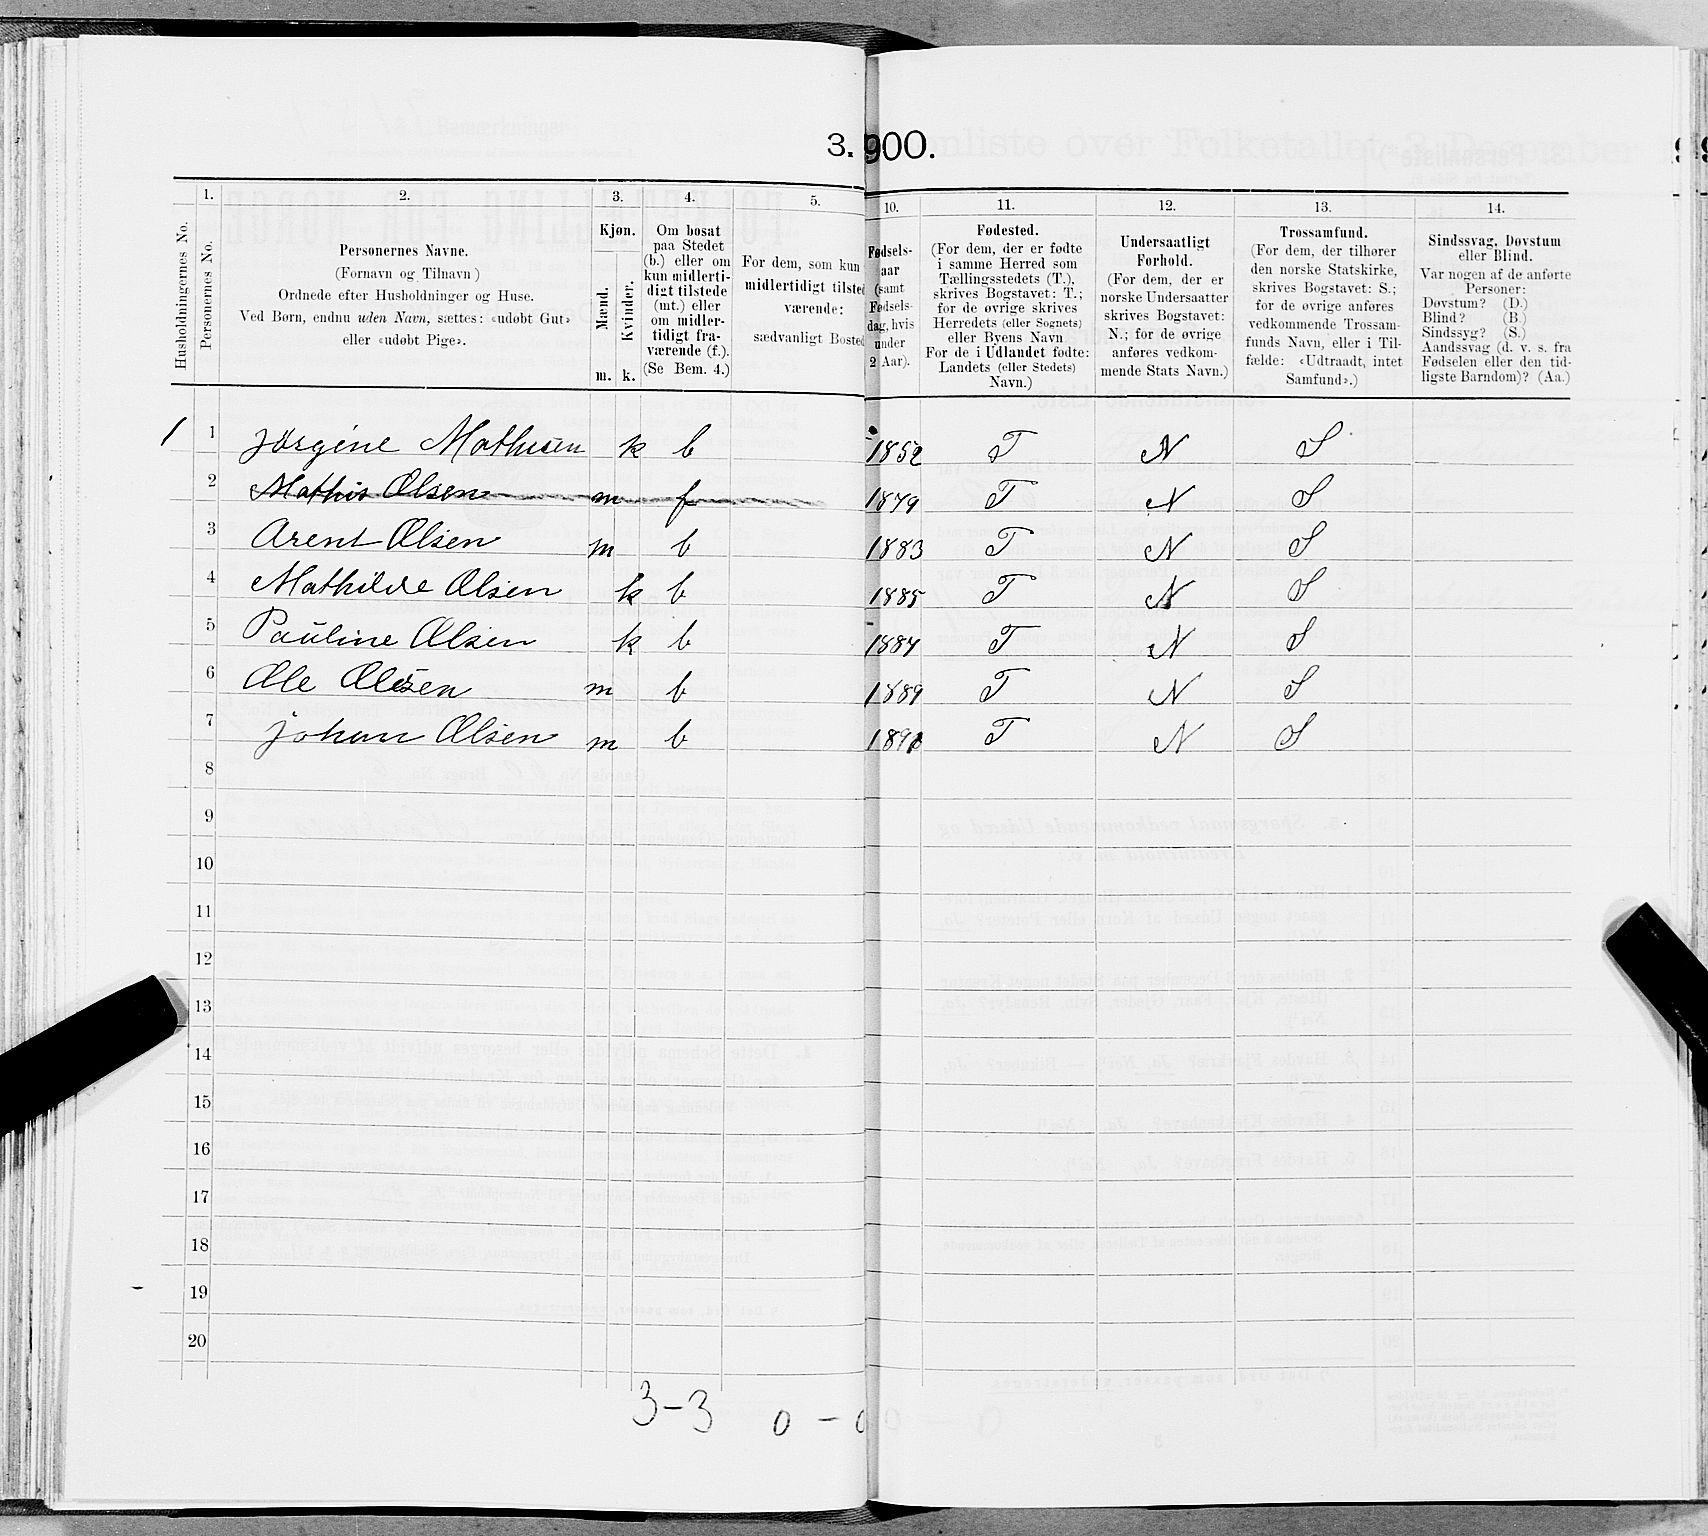 3. 900.
1. 2. 3. 4. 5. 10. 11. 12. 13. 14.
Husholdningernes No.
Personernes No.
Personernes Navne.
(Fornavn og Tilnavn)
Ordnede efter Husholdninger og Huse.
Ved Børn, endnu uden Navn, sættes: «udøbt Gut»
eller «udøbt Pige».
Kjøn.
Mænd.
Kvinder.
m. k.
Om bosat
paa Stedet
(b.) eller om
kun midlerti-
digt tilstede
(mt.) eller
om midler-
tidigt fra-
værende (f.).
(Se Bem. 4.)
For dem, som kun
midlertidigt tilsted
værende:
sædvanligt Bosted
Fødsels-
aar
(samt
Fødsels-
dag, hvis
under
2 Aar).
Fødested.
(For dem, der er fødte
i samme Herred som
Tællingsstedets (T.),
skrives Bogstavet: T.;
for de øvrige skrives
Herredets (eller Sognets)
eller Byens Navn
For de i Udlandet fødte:
Landets (eller Stedets)
Navn.)
Undersaatligt
Forhold.
(For dem, der er
norske Undersaatter
skrives Bogstavet:
N.; for de øvrige
anføres vedkom-
mende Stats Navn.)
Trossamfund.
(For dem, der tilhører
den norske Statskirke,
skrives Bogstavet: S.;
for de øvrige anføres
vedkommende Trossam-
funds Navn, eller i Til-
fælde: «Udtraadt, intet
Samfund».)
Sindssvag, Døvstum
eller Blind.
Var nogen af de anførte
Personer:
Døvstum? (D.)
Blind? (B.)
Sindssyg? (S.)
Aandssvag (d. v. s. fra
Fødselen eller den tid-
ligste Barndom)? (Aa.)
1 1 Jørgine Mathisen k b 1852 T N S
2 Mathis Olsen m f 1849 T N S
3 Arent Olsen m b 1883 T N S
4 Mathilde Olsen k b 1885 T N S
5 Pauline Olsen k b 1887 T N S
6 Ole Olsen m b 1889 T N S
7 Johan Olsen m b T N S
8
9
10
11
12
13
14
15
16
17
18
19
20
3-3 0-0 0-0